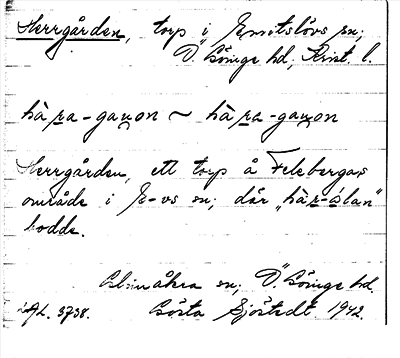 Herrgården, torp i Emitslövs sn;
Ö. Göinge hd, Krist. l.
hà ra-gaṇon ~ hà ra-gaṇon
Herrgården, ett torp å Felebergas
område i E-vs sn; där „hàr-ślan"
bodde.
Glimåkra sn; Ö. Göinge hd.
AL. 3738. Gösta Sjöstedt 1942.